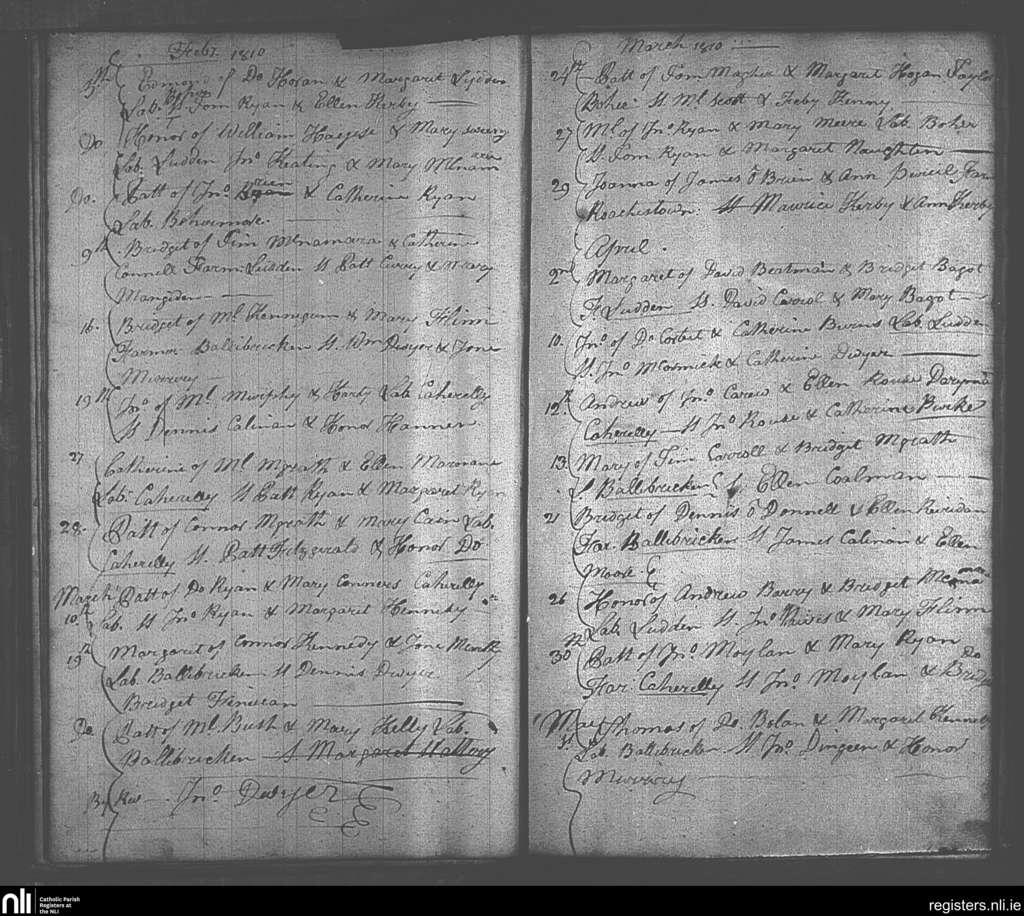 Febr. 1810
5th Edmond of Do Hogan & Margaret
Lab. Boher St Tom Ryan & Ellen Kerby
Do Honor of William & Mary sweeny
Lab. Ludden Jno. Keating & Mary McNamara
Do. Patt of Jno. Brien & Catherine Ryan
Lab.
9th Bridget of Tim McNamara & Catherine
Connell Farm. Ludden St Patt Curry & Mary
Mangiden
16. Bridget of Ml. & Mary Flinn
Farmer Ballibricken St. Wm Dwyer & Jone
Murrury
19th Jno of Ml. Murphy & Lab Caherelly
St Dennis Calinan & Honor Hannen
27 Catherine of Ml. Mgrath & Ellen
Lab. Caherelly St Patt Ryan & Margaret Ryan
28. Patt of Connor Mgrath & Mary Cain Lab.
Caherelly St. Patt Fitzgerald & Honor Do
March Patt of Do Ryan & Mary Conners Caherelly
10.th Lab. St Jno Ryan & Margaret Kennedy
19th Margaret of Connor Kennedy & Jone
Lab. Ballibricken St Dennis Dwyer
Bridget Finucan
Do Patt of Ml. Bush & Mary Kelly Lab.
Ballibricken St Margaret Slattery
By Rev Jno. Dwyer
March 1810
24th Patt of Tom Magher & Margaret Hogan Taylor
Boher St Ml. Scott & Feby Kenny
27 Ml. of Jno Ryan & Mary Meere Lab. Boher
St Tom Ryan & Margaret Naughten
29 Joanna of James O Brien & Ann Far
Roachestown. St Maurice Kerby & Ann Kerby
April.
2nd Margaret of David Bertman & Bridget Bagot
F Ludden St. David Carrol & Mary Bagot
10. Jno. of Do Corbet & Catherine Burns Lab. Ludden
St Jno McCormick & Catherine Dwyer
12th Andrew of Jno. Carew & Ellen Rouse
Caherelly St Jno Rouse & Catherine Burke
13 Mary of Tim Carroll & Bridget Mgrath
Ballibricken S. Ellen Coalman
21 Bridget of Dennis O Donnell & Ellen Reirdan
Far. Ballibricken St James Calinan & Ellen
Moore
26 Honor of Andrew Barry & Bridget McNamara
Lab. Ludden St. Jno & Mary Flinn
30th Patt of Jno. Moylan & Mary Ryan
Far. Caherelly St Jno. Moylan & Bridgt Do
May Thomas of Do. Bolan & Margaret Kennedy
3d Lab. Ballibricken St Jno. Dingeen & Honor
Murrury
nli
Catholic Parish
Registers at
the NLI
registers.nli.ie